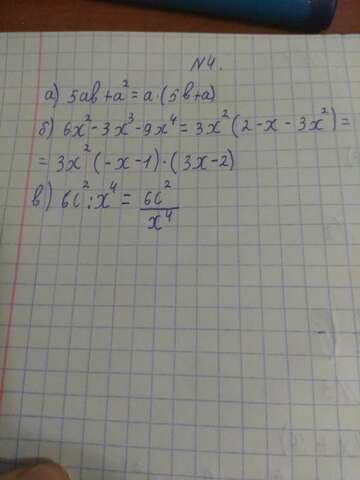 №4.
а) 5ab+a² = a·(5b+a)
б) 6x²-3x³-9x⁴ = 3x²(2-x-3x²) =
= 3x²(-x-1)·(3x-2)
в) 6c²:x⁴ = 6c²/x⁴